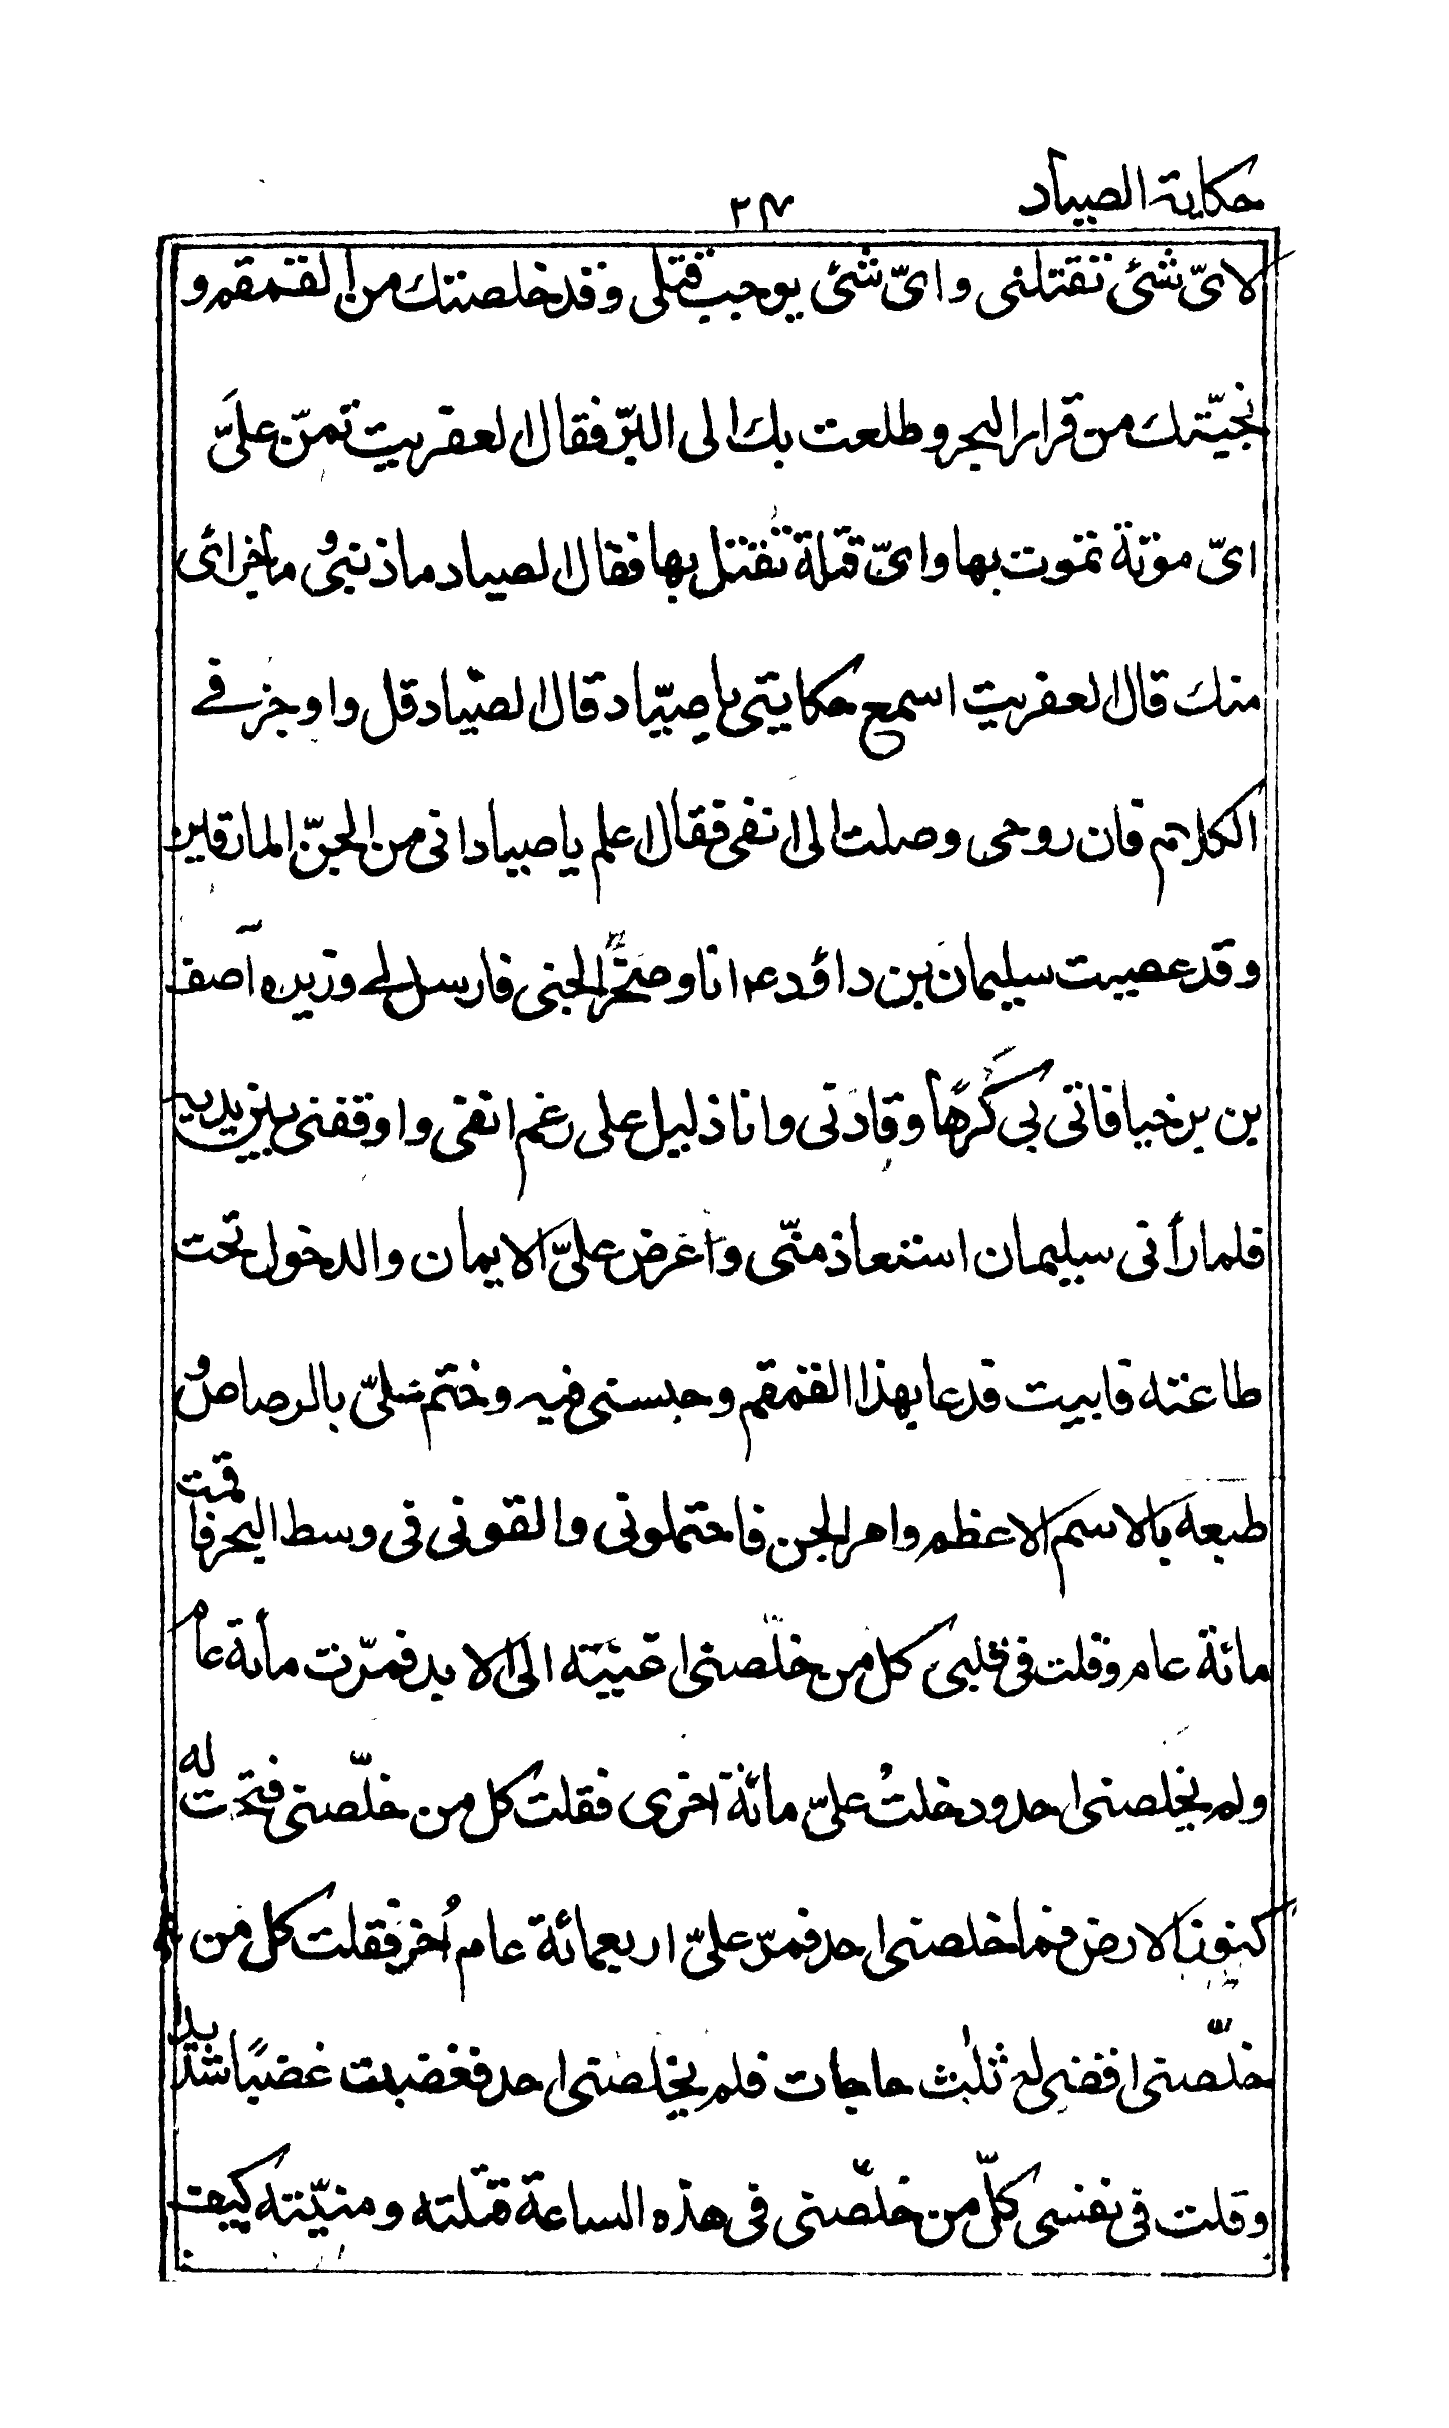 حكاية الصياد
٢٤
لاىّ شئ تقتلنى واىّ شئ يوجب قتلى وقد خلصتك من القمقم و
نجيّتك من قرار البحر وطلعت بك الى البرّ فقال العفريت تمنّ علىَّ
اىّ موتة تموت بها واىّ قتلة تقتل بها فقال الصياد ما ذنبى و ما جزائى
منك قال العفريت اسمع حكايتى يا صيّاد قال الصيّاد قل واوجز فے
الكلام فان روحى وصلت الى انفى فقال اعلم يا صياد انى من الجنّ المارقين
وقد عصيت سليمان بن داؤد ع انا وصخر الجنى فارسل لے وزيره آصف
بن برخيا فاتى بى كَرْهًا وقادَنى وانا ذليل على رغم انفى واوقفنى بين يديه
فلما رأنى سليمان استعاذ منّى واعرض علىّ الايمان والدخول تحت
طاعته فابيت فدعا بهذا القمقم وحبسنى فيه وختم علىّ بالرصاص و
طبعه بالاسم الاعظم وامر الجن فاحتملونى والقونى فى وسط البحر فاقمت
مائة عام وقلت فى قلبى كل من خلّصنى اغنيته الى الابد فمرّت مأية عام
ولم يخلصنى احد ودخلتُ علىّ مائة اخرى فقلت كل من خلّصنى فتحت له
كنوز الارض فما خلصنى احد فمرّ علىّ اربعمائة عام اُخر فقلت كل من
خلّصنى اقضى له ثلٰث حاجات فلم يخلصنى احد فغضبت غضبًا شديدا
وقلت فى نفسى كلّ من خلّصنى فى هذه الساعة قتلته ومنيّته كيف